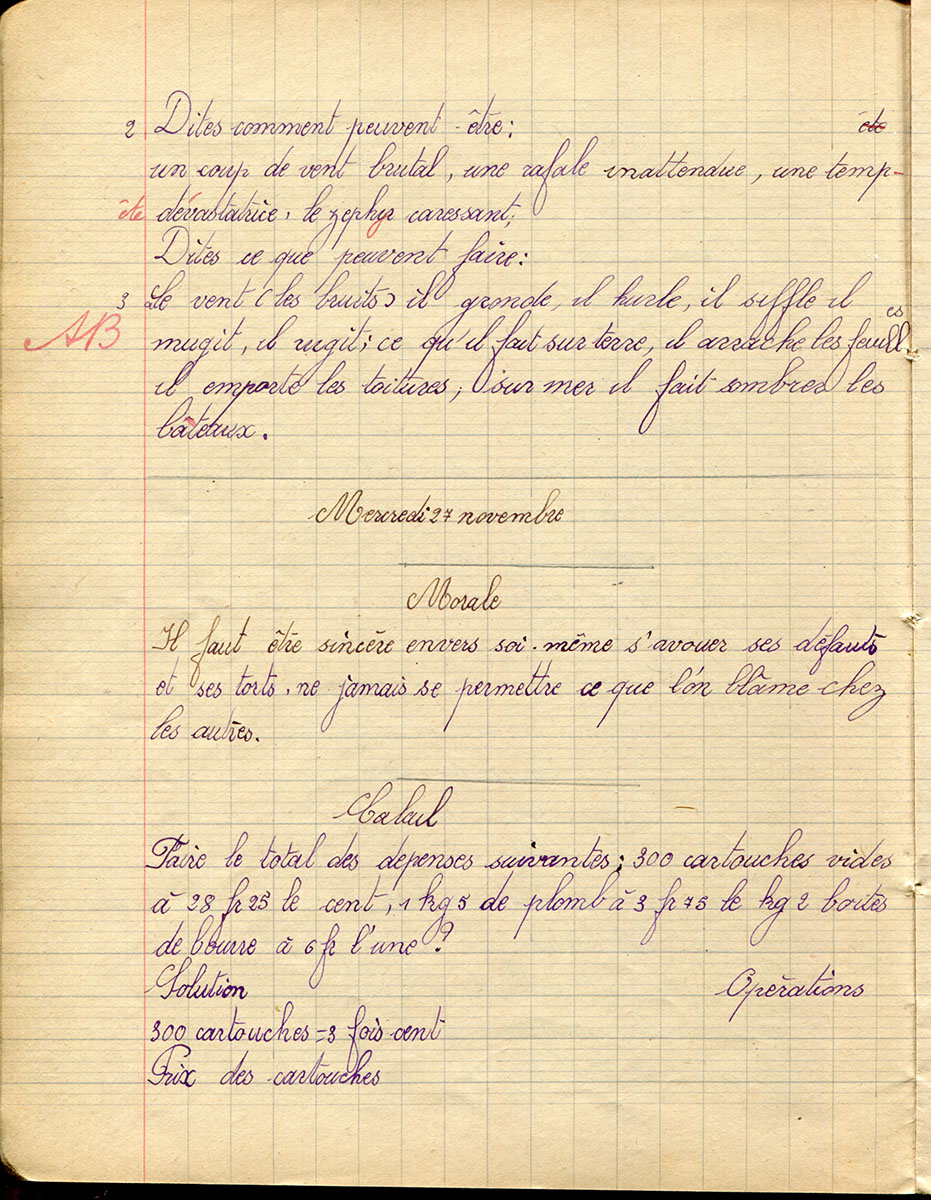 2 Dites comment peuvent être : ête
un coup de vent brutal, une rafale inattendue, une temp-
ête dévastatrice, le zephyr caressant;
Dites ce que peuvent faire :
3 Le vent (les bruits) il gronde, il hurle, il siffle il
AB mugit, il rugit; ce qu'il fait sur terre, il arrache les feuilles
il emporte les toitures; sur mer il fait sombrer les
bâteaux.
Mercredi 27 novembre
Morale
Il faut être sincère envers soi-même s'avouer ses défauts
et ses torts, ne jamais se permettre ce que l'on blâme chez
les autres.
Calcul
Faire le total des depenses suivantes : 300 cartouches vides
à 28 fr 25 le cent, 1 kg 5 de plomb à 3 fr 75 le kg 2 boites
de bourre à 6 fr l'une ?
Solution Opérations
300 cartouches = 3 fois cent
Prix des cartouches